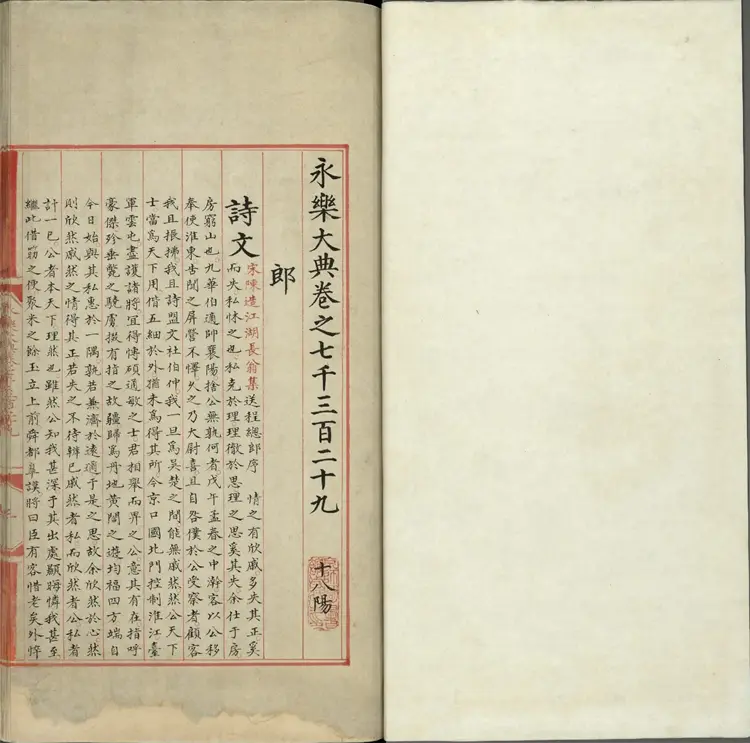 永樂大典卷之七千三百二十九 十八陽
郎
詩文 宋陳造江湖長翁集送程總郎序 情之有欣戚多失其正奚
而失私怵之也私克於理理徹於思理之思奚其失余仕于房
房窮山也九華伯適帥襄陽捨公無孰何者戊午孟春之中澣客以公移
奉使淮東告聞之屏營不懌久之乃大尉喜且自咎僕於公受察者顧客
我且振拂我且詩盟文社伯仲我一旦為吳楚之間能無戚然然公天下
士當為天下用偕五細於外猶未為得其所今京口國北門控制淮江臺
軍雲屯盡護諸將宜得慱碩通敏之士君相舉而畀之公意其有在指呼
豪傑殄垂斃之驍虜掇有指之故疆歸為丹地黃閣之遊均福四方端自
今日始與其私惠於一隅孰若兼濟於遠邇于是之思故余欣然於心然
則欣然戚然之情得其正若失之不待辨已戚然者私而欣然者公私者
計一己公者本天下理然也雖然公知我甚深于其出處顯晦憐我甚至
繼此借筯之便聚米之餘玉立上前舜都皋謨將曰臣有客惜老矣外悴